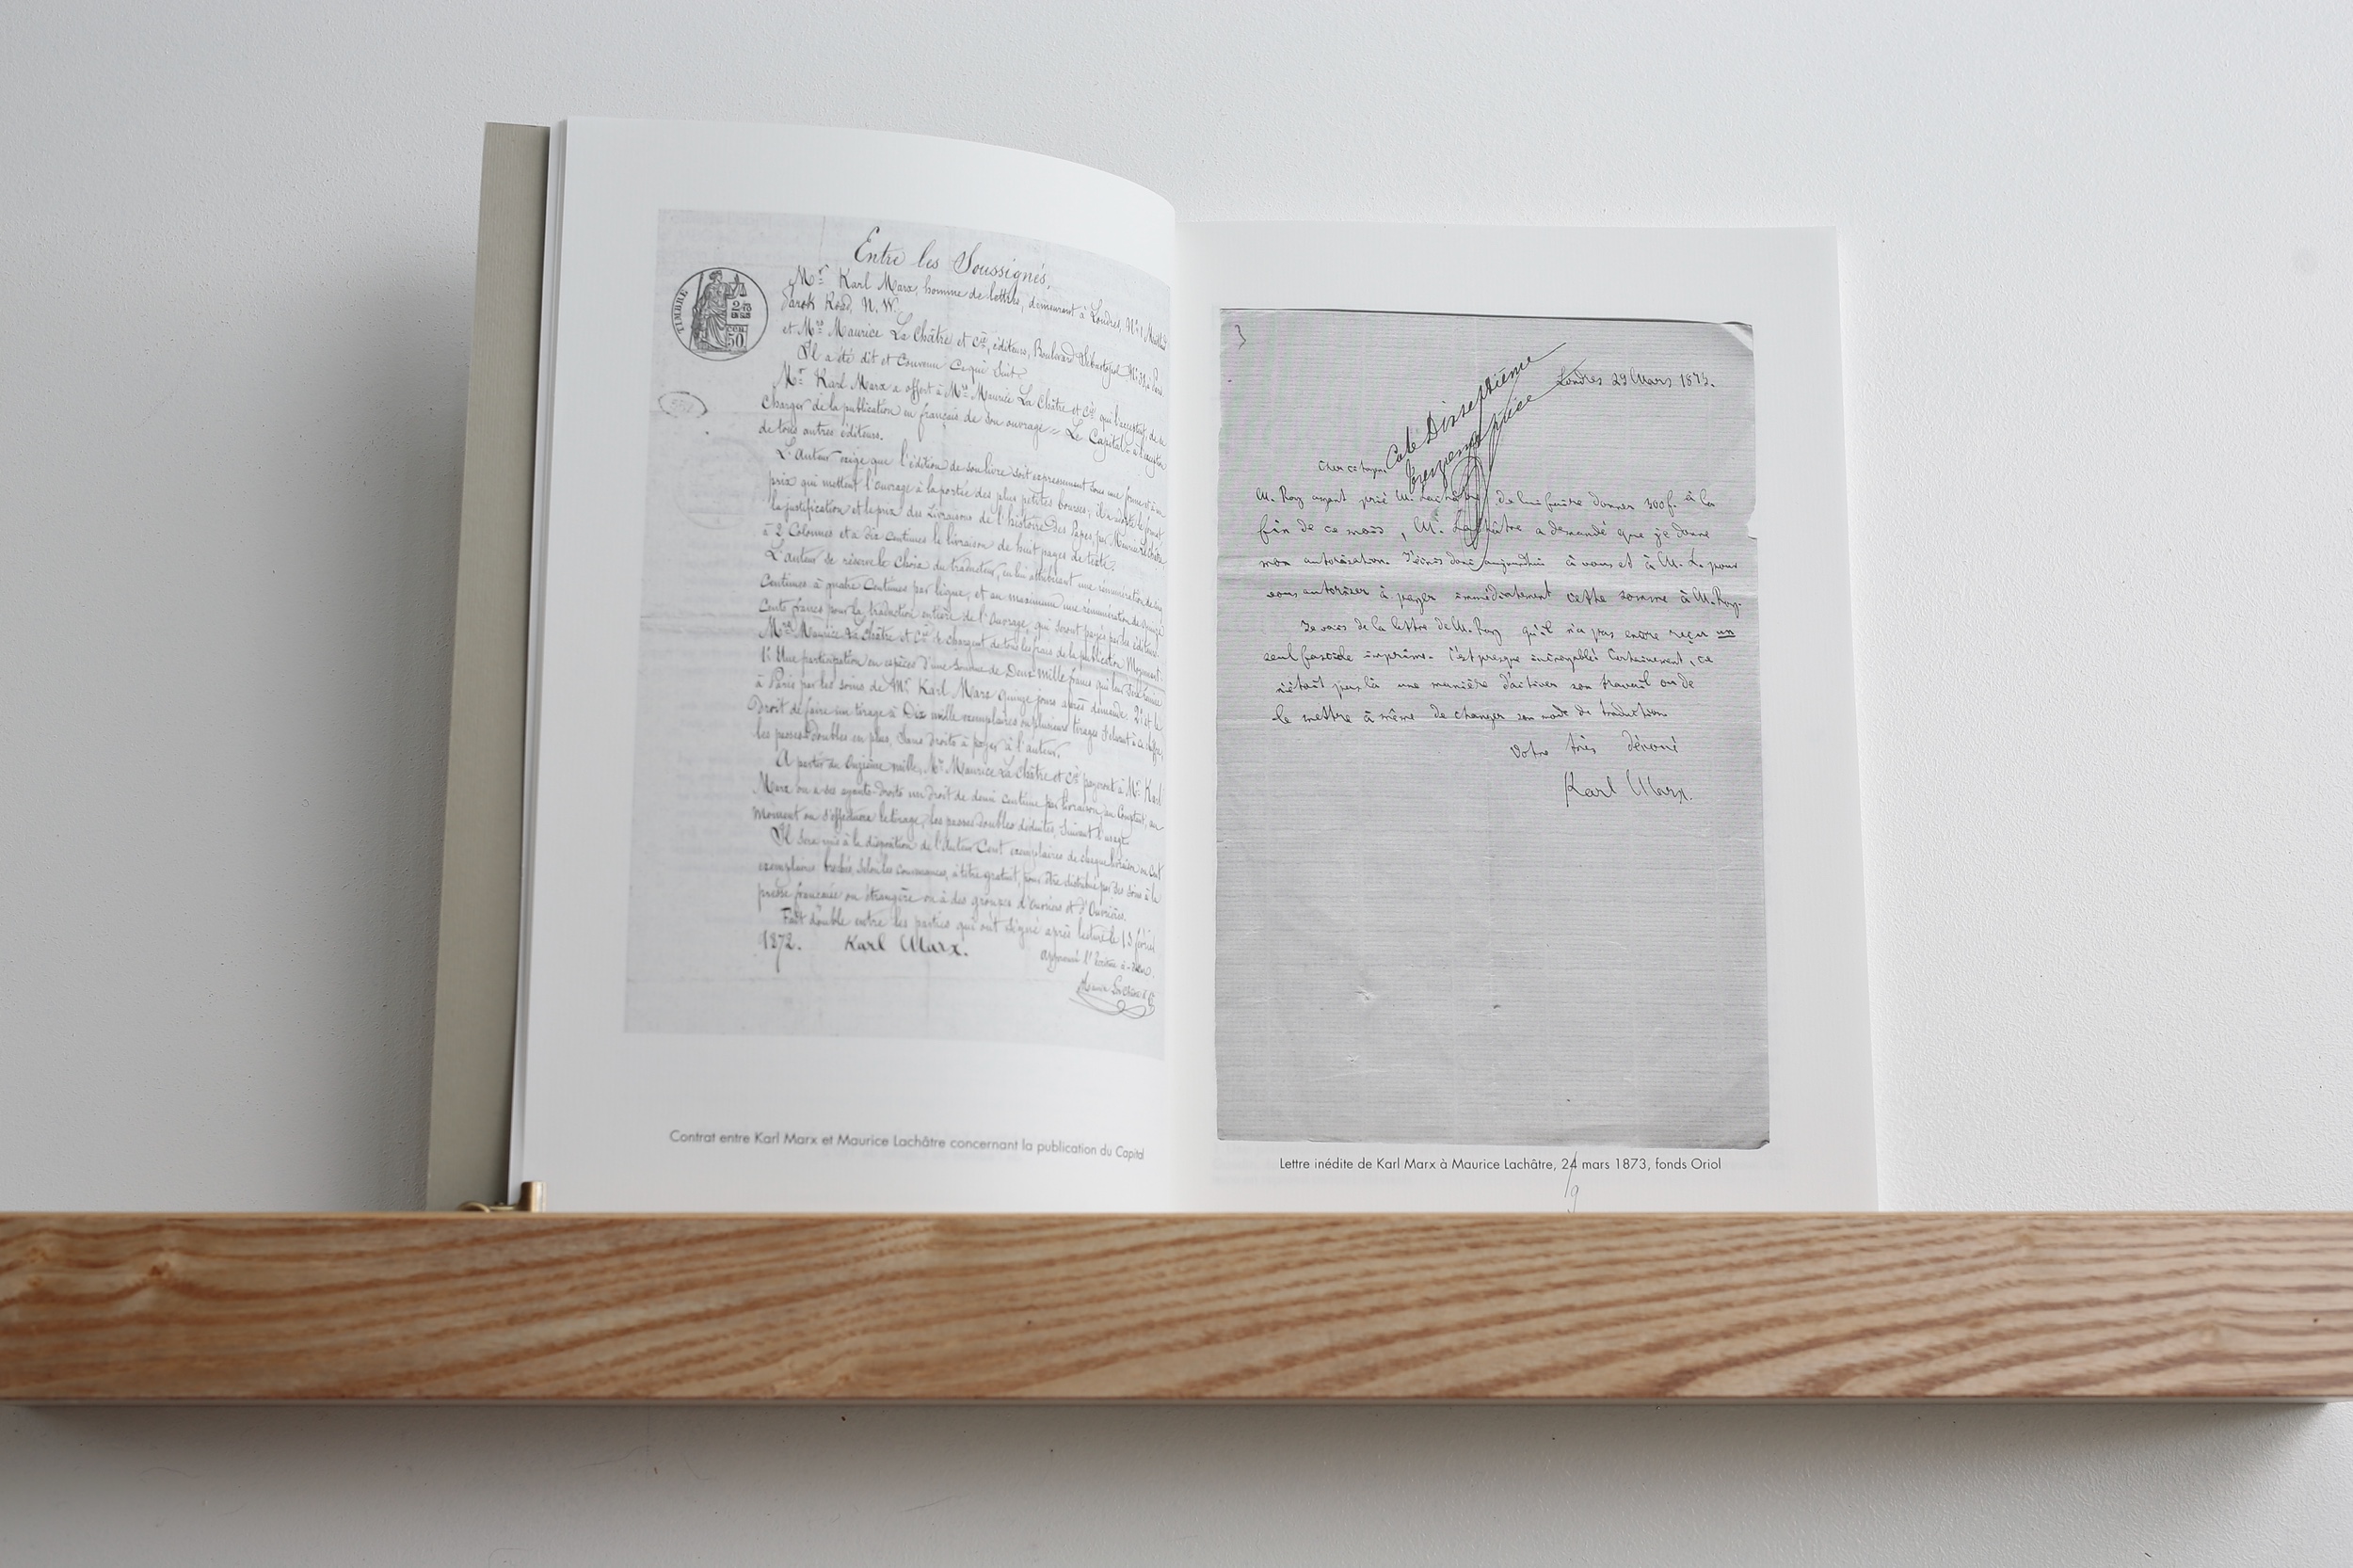 Entre les Soussignés,
TIMBRE
50
Mr. Karl Marx, homme de lettres, demeurant à Londres, No. 1 Maitland
Park Road, N. W.
et Mrs. Maurice La Châtre et Cie, éditeurs, Boulevard Sébastopol No. 38, à Paris.
Il a été dit et Convenu Ce qui Suit:
Mr. Karl Marx a offert à Mrs. Maurice La Châtre et Cie, qui l'acceptent, de se
Charger de la publication en français de Son ouvrage = Le Capital = à l'exception
de tous autres éditeurs.
L'Auteur exige que l'édition de son livre soit expressément sous une forme et à un
prix qui mettent l'ouvrage à la portée des plus petites bourses; il adopte le format
la justification et le prix des Livraisons de l'histoire des Papes, par Maurice La Châtre,
à 2 Colonnes et à dix Centimes la livraison de huit pages de texte.
L'auteur se réserve le Choix du traducteur, en lui attribuant une rémunération de
Centimes à quatre Centimes par ligne, et au maximum une rémunération de quinze
Cents francs pour la traduction entière de l'ouvrage, qui seront payés par les éditeurs.
Mrs. Maurice La Châtre et Cie se chargent de tous les frais de la publication Moyennant:
1o. Une participation en espèces d'une somme de Deux mille francs qui leur Sera
à Paris par les soins de Mr. Karl Marx quinze jours après demande. 2o. et le
Droit de faire un tirage à Dix mille exemplaires ou plusieurs tirages S'élevant à ce chiffre,
les passes doubles en plus, Sans droits à payer à l'auteur.
A partir du Onzième mille, Mrs. Maurice La Châtre et Cie payeront à Mr. Karl
Marx ou à ses ayants-droits un droit de demi centime par livraison, au Comptant, au
Moment où S'effectuera le tirage, les passes doubles déduites, Suivant l'usage.
Il sera mis à la disposition de l'Auteur Cent exemplaires de chaque livraison ou Cent
exemplaires brochés, Selon les convenances, à titre gratuit, pour être distribués par ses soins à la
presse française ou étrangère ou à des groupes d'ouvriers et d'ouvrières.
Fait double entre les parties qui ont Signé après lecture le 13 février
1872. Karl Marx.
Approuvé l'écriture
Maurice La Châtre & Cie
Contrat entre Karl Marx et Maurice Lachâtre concernant la publication du Capital
3
Londres 29 Mars 1873.
Cote Dixseptième
pièce
Cher citoyen,
M. Roy ayant prié M. Lachâtre, de lui faire donner 300 f. à la
fin de ce mois, M. Lachâtre a demandé que je donne
mon autorisation. J'écris donc aujourd'hui à vous et à M. L. pour
vous autoriser à payer immédiatement cette somme à M. Roy.
Je vois de la lettre de M. Roy qu'il n'a pas encore reçu un
seul fascicule imprimé. C'est presque incroyable! Certainement, ce
n'était pas là une manière d'activer son travail ou de
le mettre à même de changer son mode de traduction.
Votre très dévoué
Karl Marx.
Lettre inédite de Karl Marx à Maurice Lachâtre, 24 mars 1873, fonds Oriol
9